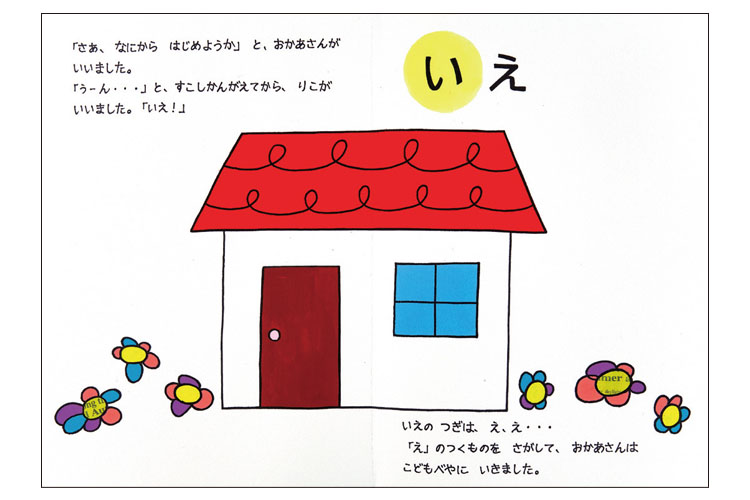 「さあ、なにから　はじめようか」と、おかあさんが
いいました。
「うーん・・・」と、すこしかんがえてから、りこが
いいました。「いえ！」
いえ
ing t
Au
mer a
いえの つぎは、え、え・・・
「え」のつくものを　さがして、おかあさんは
こどもべやに　いきました。